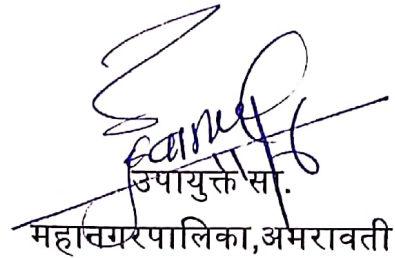 उपायुक्त सा.
महानगरपालिका,अमरावती